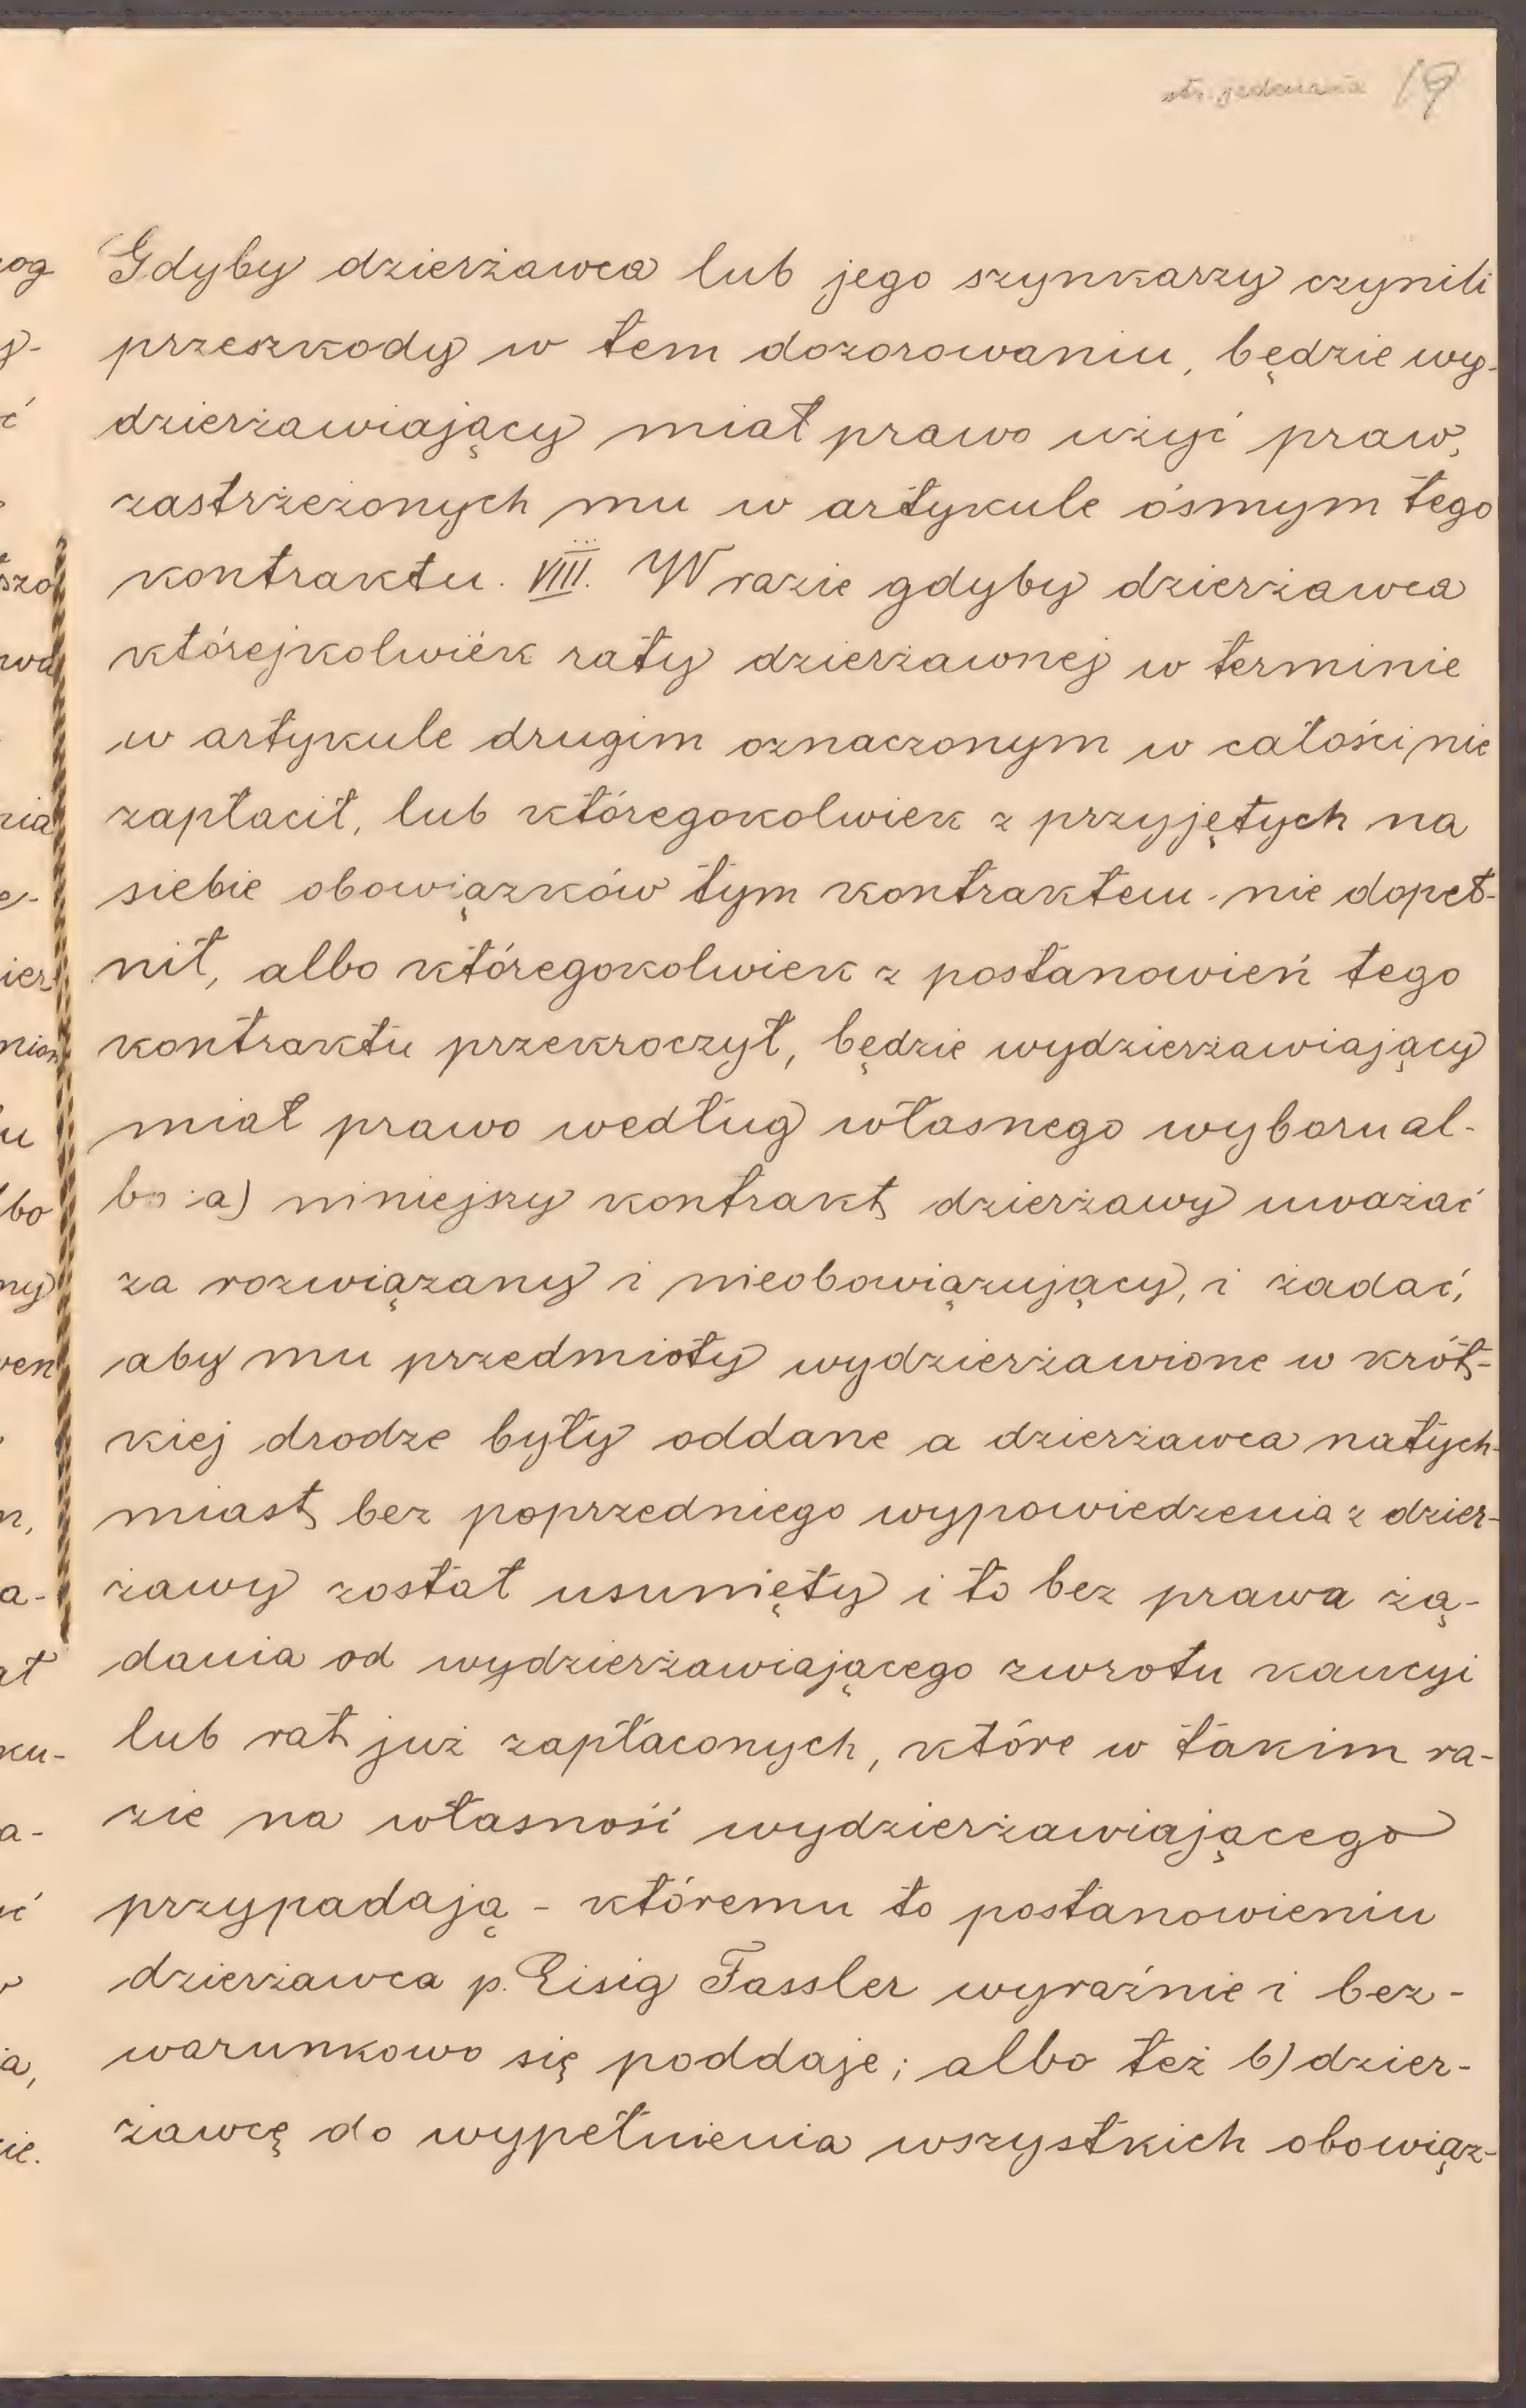 19
Gdyby dzierżawca lub jego szynkarzy czynili
przeszkody w tem dozorowaniu, będzie wy-
dzierżawiający miał prawo użyć praw,
zastrzeżonych mu w artykule ósmym tego
kontraktu. VIII. W razie gdyby dzierżawca
którejkolwiek raty dzierżawnej w terminie
w artykule drugim oznaczonym w całości nie
zapłacił, lub któregokolwiek z przyjętych na
siebie obowiązków tym kontraktem nie dopeł-
nił, albo któregokolwiek z postanowień tego
kontraktu przekroczył, będzie wydzierżawiający
miał prawo według własnego wyboru al-
bo: a) niniejszy kontrakt dzierżawy uważać
za rozwiązany i nieobowiązujący, i żadać,
aby mu przedmioty wydzierżawione w krót-
kiej drodze były oddane a dzierżawca natych-
miast bez poprzedniego wypowiedzenia z dzier-
żawy został usunięty i to bez prawa żą-
dania od wydzierżawiającego zwrotu kaucyi
lub rat już zapłaconych, które w takim ra-
zie na własność wydzierżawiającego
przypadają - któremu to postanowieniu
dzierżawca p. Eisig Fassler wyraźnie i bez-
warunkowo się poddaje; albo też b) dzier-
żawcę do wypełnienia wszystkich obowiąz-